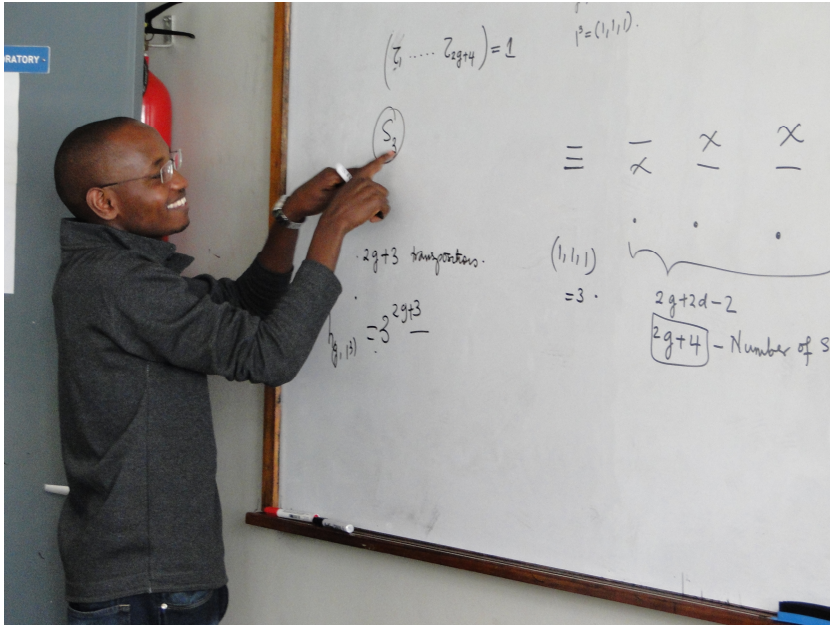 RATORY -
(τ₁ ..... τ₂g₊₄) = 1
1³ = (1,1,1).
S₃
≡ — x x
x — —
. 2g+3 transpositions.
(1,1,1)
= 3 .
h(g, 1³) = 3^(2g+3)
2g+2d-2
2g+4 - Number of S